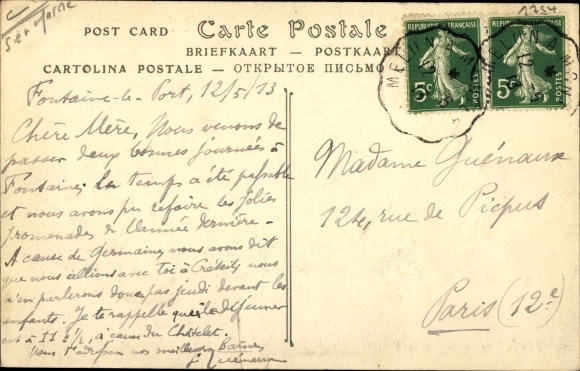 Sie et Marne
1754
POST CARD
Carte Postale
BRIEFKAART — POSTKAART
CARTOLINA POSTALE — ОТКРЫТОЕ ПИСЬМО
REPUBLIQUE FRANÇAISE
5c
POSTES
REPUBLIQUE FRANÇAISE
5c
POSTES
MELUN A
MELUN A MON
Fontaine-le-Port, 12/5/13
Chère Mère, Nous venons de
passer deux bonnes journées à
Fontaine; le temps a été passable
et nous avons pu refaire les jolies
promenades de l'année dernière.-
A cause de Germaine, nous avons dit
que nous allions avec toi à Créteil; nous
n'en parlerons donc pas jeudi devant les
enfants. Je te rappelle que le déjeuner
est à 11 h 1/2, à cause du Châtelet.
Nous t'adressons nos meilleurs Baisers
Guénaux
Madame Guénaux
124, rue de Picpus
Paris (12e)